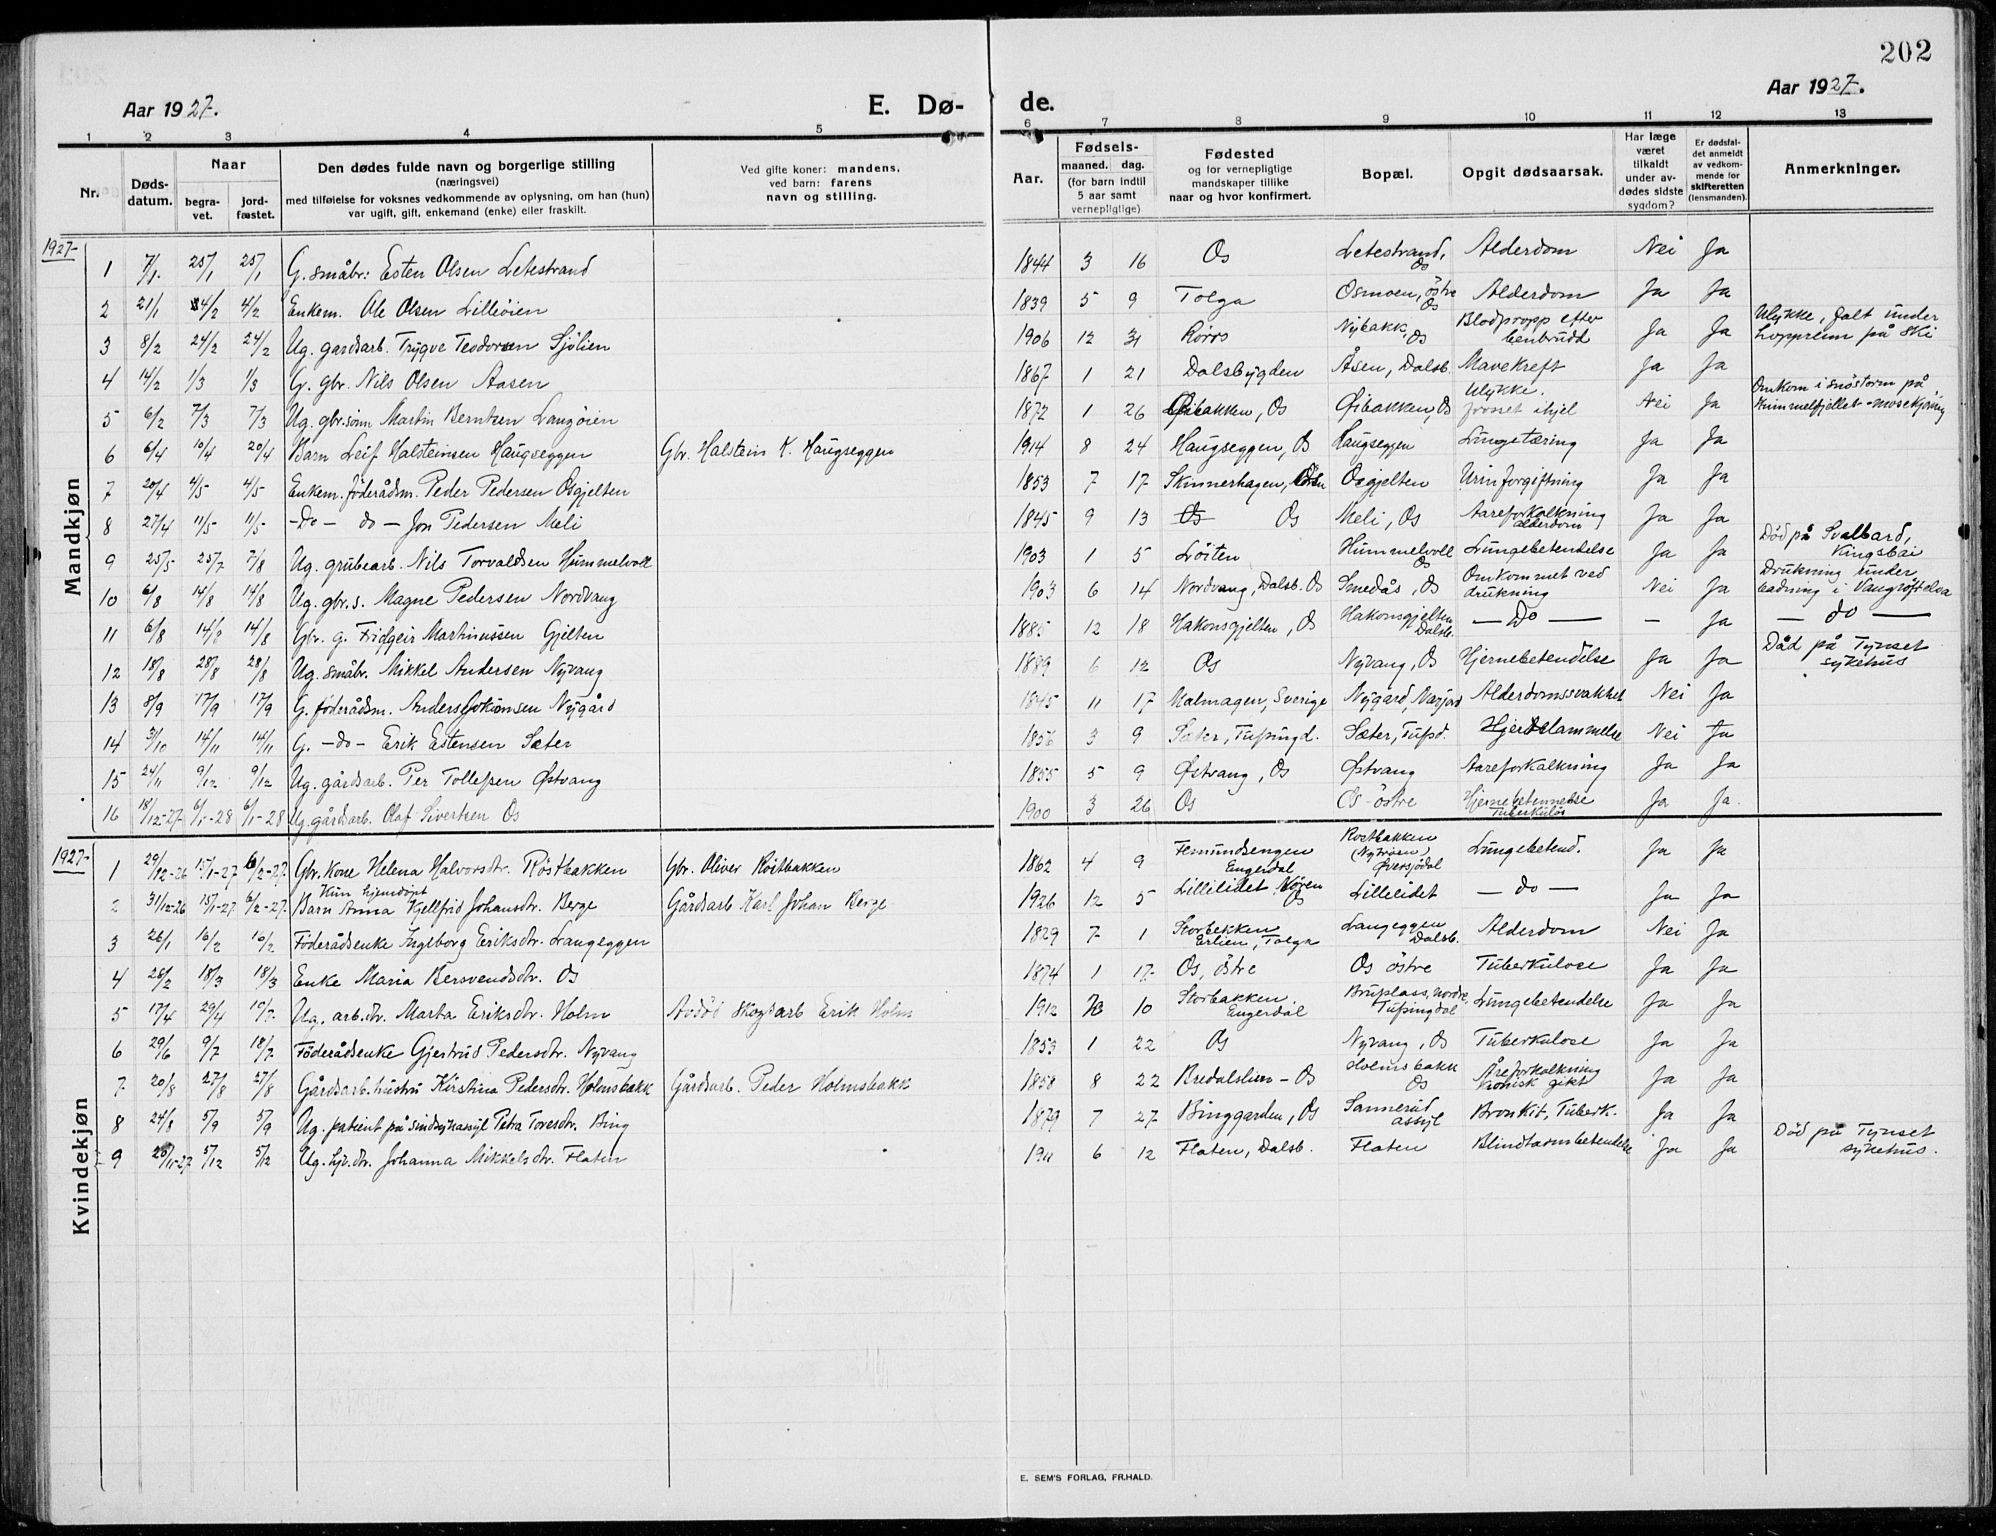 202
Aar 1927.
E. Dø-
de.
Aar 1927.
1 2 3 4 5 6 7 8 9 10 11 12 13
Nr. Døds-datum. Naar begra-vet. jord-fæstet. Den dødes fulde navn og borgerlige stilling (næringsvei) med tilføielse for voksnes vedkommende av oplysning, om han (hun) var ugift, gift, enkemand (enke) eller fraskilt. Ved gifte koner: mandens, ved barn: farens navn og stilling. Aar. Fødsels- maaned. dag. (for barn indtil 5 aar samt vernepligtige) Fødested og for vernepligtige mandskaper tillike naar og hvor konfirmert. Bopæl. Opgit dødsaarsak. Har læge været tilkaldt under av-dødes sidste sygdom? Er dødsfal-det anmeldt av vedkom-mende for skifteretten (lensmanden). Anmerkninger.
1927-
Mandkjøn
1 7/1 25/1 25/1 G. småbr: Esten Olsen Letestrand 1844 3 16 Os Letestrand, Os Alderdom Nei Ja
2 21/1 4/2 4/2 Enkem. Ole Olsen Lilleöien 1839 5 9 Tolga Osmoen, östre Os Alderdom Ja Ja
3 8/2 24/2 24/2 Ug. gardsarb. Trygve Teodorsen Sjölien 1906 12 31 Röros Nybakk, Os Blodpropp efter benbrudd Ja Ja Ulykke, falt under hopprenn på ski
4 14/2 1/3 1/3 G. gbr. Nils Olsen Aasen 1867 1 21 Dalsbygden Åsen, Dalsb. Mavekreft Ja Ja
5 6/2 7/3 7/3 Ug. gbr.sönn Martin Berntsen Langöien 1872 1 26 Öibakken, Os Öibakken, Os Ulykke. frosset ihjel Nei Ja Omkom i snöstorm på Hummelfjellet - mosekjöring
6 6/4 10/4 20/4 Barn Leif Halsteinsen Haugseggen Gbr. Halstein K. Haugseggen 1914 8 24 Haugseggen, Os Haugseggen Lungetæring Ja Ja
7 20/4 4/5 4/5 Enkem. föderådsm. Peder Pedersen Osgjelten 1853 7 17 Skinnerhagen, Osgjelten Urinforgiftning Ja Ja
8 27/4 11/5 11/5 -Do- do - Jon Pedersen Meli 1845 9 13 Os Os Meli, Os Aareforkalkning alderdom Ja Ja
9 25/5 25/7 7/8 Ug. grubearb. Nils Torvaldsen Hummelvoll 1903 1 5 Löiten Hummelvoll Os Lungebetendelse Ja Ja Död på Svalbard, Kingsbai
10 6/8 14/8 14/8 Ug. gbr.s. Magne Pedersen Nordvang 1903 6 14 Nordvang, Dalsb. Os Smedås, Os Omkommet ved drukning Nei Ja Drukning under badning i Vangröftelva
11 6/8 14/8 14/8 Gbr. g. Fridgeir Martinussen Gjelten 1885 12 18 Hakonsgjelten, Os Hakonsgjelten Dalsb. — Do — - Ja — do —
12 18/8 28/8 28/8 Ug. småbr. Mikkel Andersen Nyvang 1889 6 12 Os Nyvang, Os Hjernebetendelse Ja Ja Död på Tynset sykehus
13 8/9 17/9 17/9 G. föderådsm. Anders Nygård 1845 11 17 Malmagen, Sverige Nygård, Alderdomssvakhet Nei Ja
14 3/10 14/11 14/11 G. -do- Erik Estensen Sæter 1856 3 9 Sæter, Tufsingd. Sæter, Tufsd. Hjertelammelse Nei Ja
15 24/11 9/12 9/12 Ug. gårdsarb. Per Tollefsen Östvang 1855 5 9 Östvang, Os Östvang Aareforkalkning Ja Ja
16 18/12-27 6/1-28 6/1-28 Ug. gårdsarb. Olaf Sivertsen Os 1900 3 26 Os Os - östre Hjernebetennelse Tuberkulös Ja Ja.
1927-
Kvindekjøn
1 29/12-26 15/1-27 6/2-27. Gbr. Kone Helena Halvorsdtr. Röstbakken Gbr. Oliver Röstbakken 1862 4 9 Femundsengen Engerdal Rostbakken (Nyrösen) Översjödal Lungebetend. Ja Ja
2 31/12-26 15/1-27. 6/2-27. Barn Kun hjemdöpt Anna Kjellfrid Johansdtr. Berge Gårdsarb Karl Johan Berge 1926 12 5 Lillelidet Nören Os Lillelidet — do — Ja Ja
3 26/1 16/2 16/2 Föderådsenke Ingeborg Eriksdtr. Langeggen 1829 7 1 Storbekken Erlien, Tolga Langeggen Dalsb. Alderdom Nei Ja
4 26/2 18/3 18/3 Enke Maria Bersvendsdtr. Os 1874 1 17 Os, östre Os östre Tuberkulose Ja Ja
5 17/4 29/4 Ug. arb.dr. Marta Eriksdtr. Holm Avdöd skogsarb Erik Holm 1912 10 Storbakken. Engerdal Bruplass, nordre, Tufsingdal Lungebetendelse Ja Ja
6 29/6 9/7 18/7. Föderådsenke Gjertrud Pedersdtr. Nyvang 1853 1 22 Os Nyvang, Os Tuberkulose Ja Ja
7 20/8 27/8 27/8 Gårdsarb. hustru Kirstina Pedersdtr. Holmsbakk Gårdsarb. Peder Holmsbakk 1858 8 22 Bredalslien - Os Holmsbakk Os Åreforkalkning Kronisk gikt Ja Ja
8 24/8 5/9 5/9 Ug. patient på sindsykeasyl Petra Toresdtr. Bing 1879 7 27 Binggarden, Os Sannerud assyl Bronkit, Tuberk. Ja Ja
9 5/12 5/12 Ug. hjv. dr. Johanna Mikkelsdtr. Flaten 1911 6 12 Flaten, Dalsb. Flaten Blindtarmbetendelse Ja Ja Död på Tynset sykehus.
E. SEM'S FORLAG, FR.HALD.